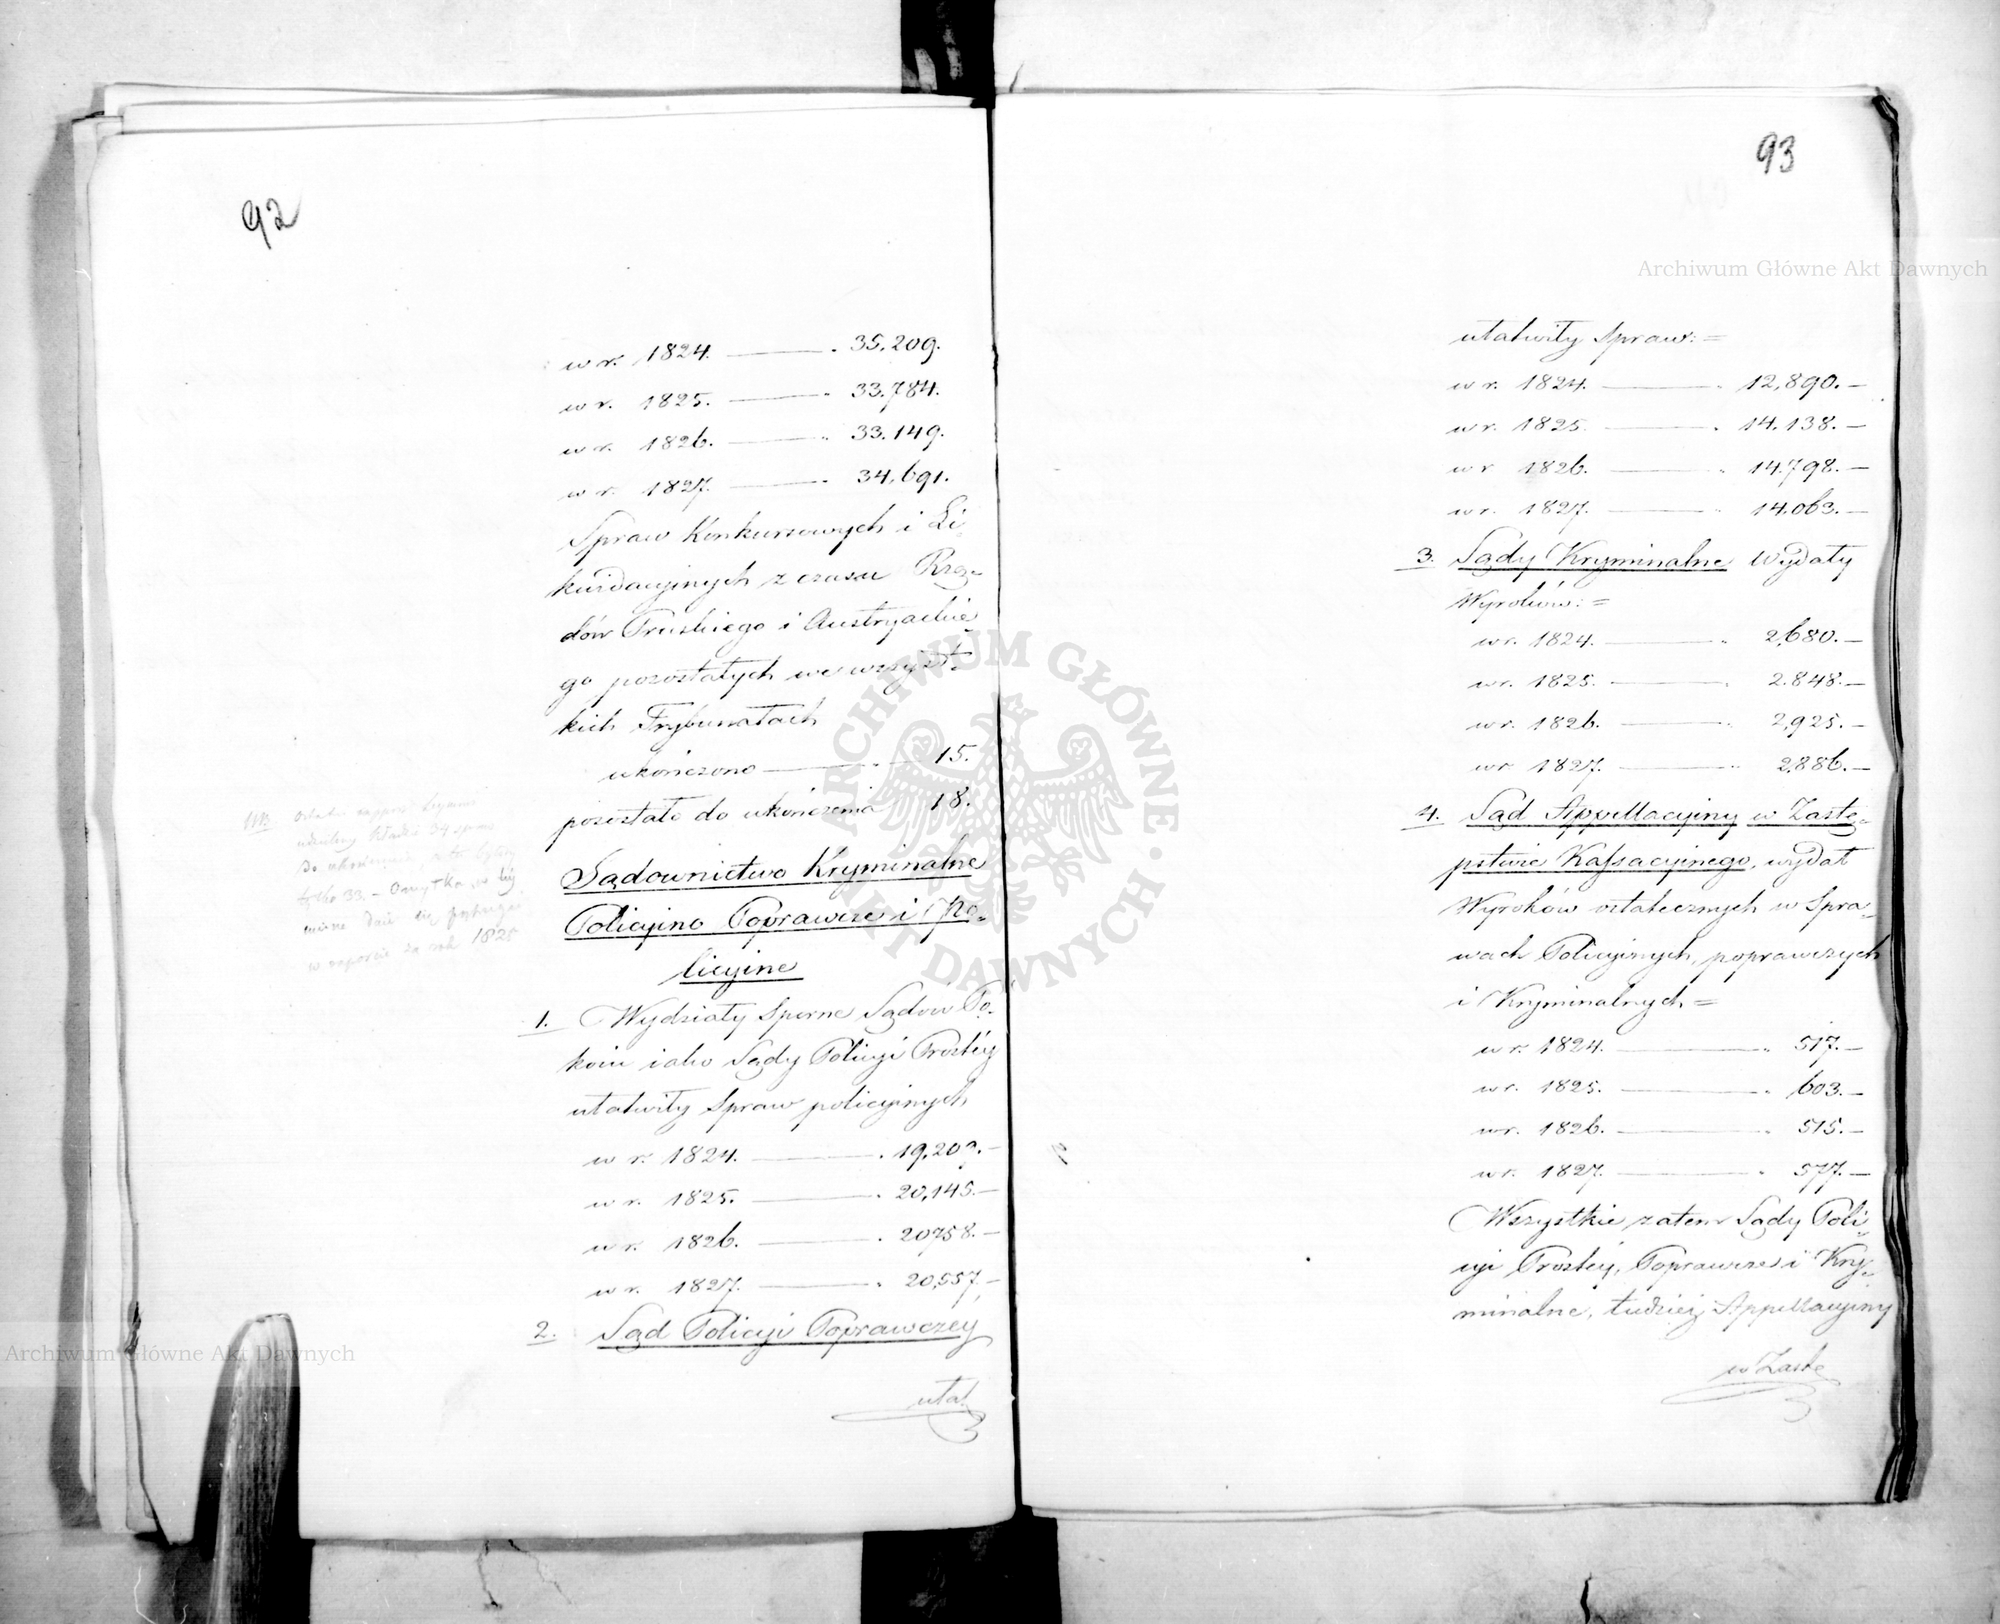 92
w r. 1824. — 35,209.
w r. 1825. — 33,784.
w r. 1826. — 33,149.
w r. 1827. — 34,691.
Spraw Konkursowych i Li-
kwidacyjnych z czasu Rzą-
dów Pruskiego i Austryackie-
go pozostałych we wszyst-
kich Trybunałach
ukończono — 15.
pozostało do ukończenia 18.
NB.
tylko 33. – Omyłka
w raporcie za rok 1825
Sądownictwo Kryminalne
Policyino Poprawcze i Po-
licyine
1. Wydziały Sporne Sądów Po-
koiu iako Sądy Policyi Prostéy
ułatwiły Spraw policyinych
w r. 1824. — 19,209.—
w r. 1825. — 20,145.—
w r. 1826. — 20758.—
w r. 1827. — 20,557.—
2. Sąd Policyi Poprawczey
uła-
93
ułatwiły Spraw: =
w r. 1824. — 12,890.—
w r. 1825. — 14,138.—
w r. 1826. — 14.798.—
w r. 1827. — 14.063.—
3. Sądy Kryminalne wydały
Wyroków: =
w r. 1824. — 2,680.—
w r. 1825. — 2.848.—
w r. 1826. — 2,925.—
w r. 1827. — 2,886.—
4. Sąd Appellacyiny w Zastę-
pstwie Kassacyinego, wydał
Wyroków ostatecznych w Spra-
wach Policyinych, poprawczych
i Kryminalnych =
w r. 1824. — 517.—
w r. 1825. — 603.—
w r. 1826. — 515.—
w r. 1827. — 577.—
Wszystkie zatem Sądy Poli-
cyi Prostéy, Poprawcze i Kry-
minalne, tudzież Appellacyiny
w Zastę
Archiwum Główne Akt Dawnych
Archiwum Główne Akt Dawnych
ARCHIWUM GŁÓWNE AKT DAWNYCH